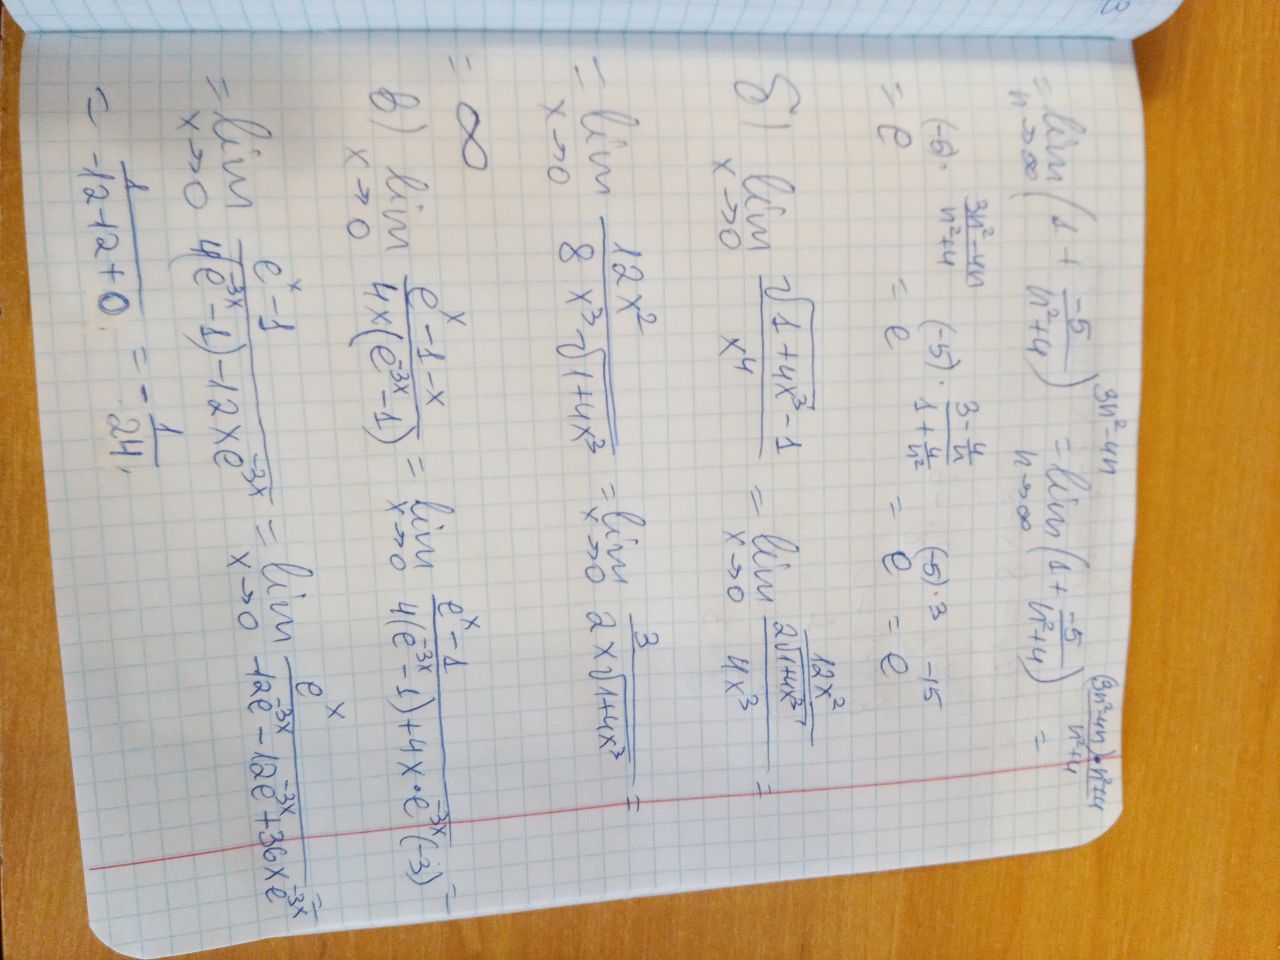 = lim n→∞ (1 + -5/(n²+4))^(3n²-4n) = lim n→∞ (1 + -5/(n²+4))^((3n²-4n)/(n²+4) · n²+4) =
= e^((-5)·(3n²-4n)/(n²+4)) = e^((-5)·(3-4/n)/(1+4/n²)) = e^((-5)·3) = e^(-15)
б) lim x→0 (√(1+4x³) -1)/x⁴ = lim x→0 (12x²/(2√(1+4x³)))/(4x³) =
= lim x→0 12x²/(8x³√(1+4x³)) = lim x→0 3/(2x√(1+4x³)) =
= ∞
в) lim x→0 (e^x -1-x)/(4x(e^(-3x) -1)) = lim x→0 (e^x -1)/(4(e^(-3x) -1)+4x·e^(-3x)(-3)) =
= lim x→0 (e^x -1)/(4(e^(-3x) -1)-12xe^(-3x)) = lim x→0 e^x/(-12e^(-3x) -12e^(-3x) +36xe^(-3x)) =
= 1/(-12-12+0) = -1/24.